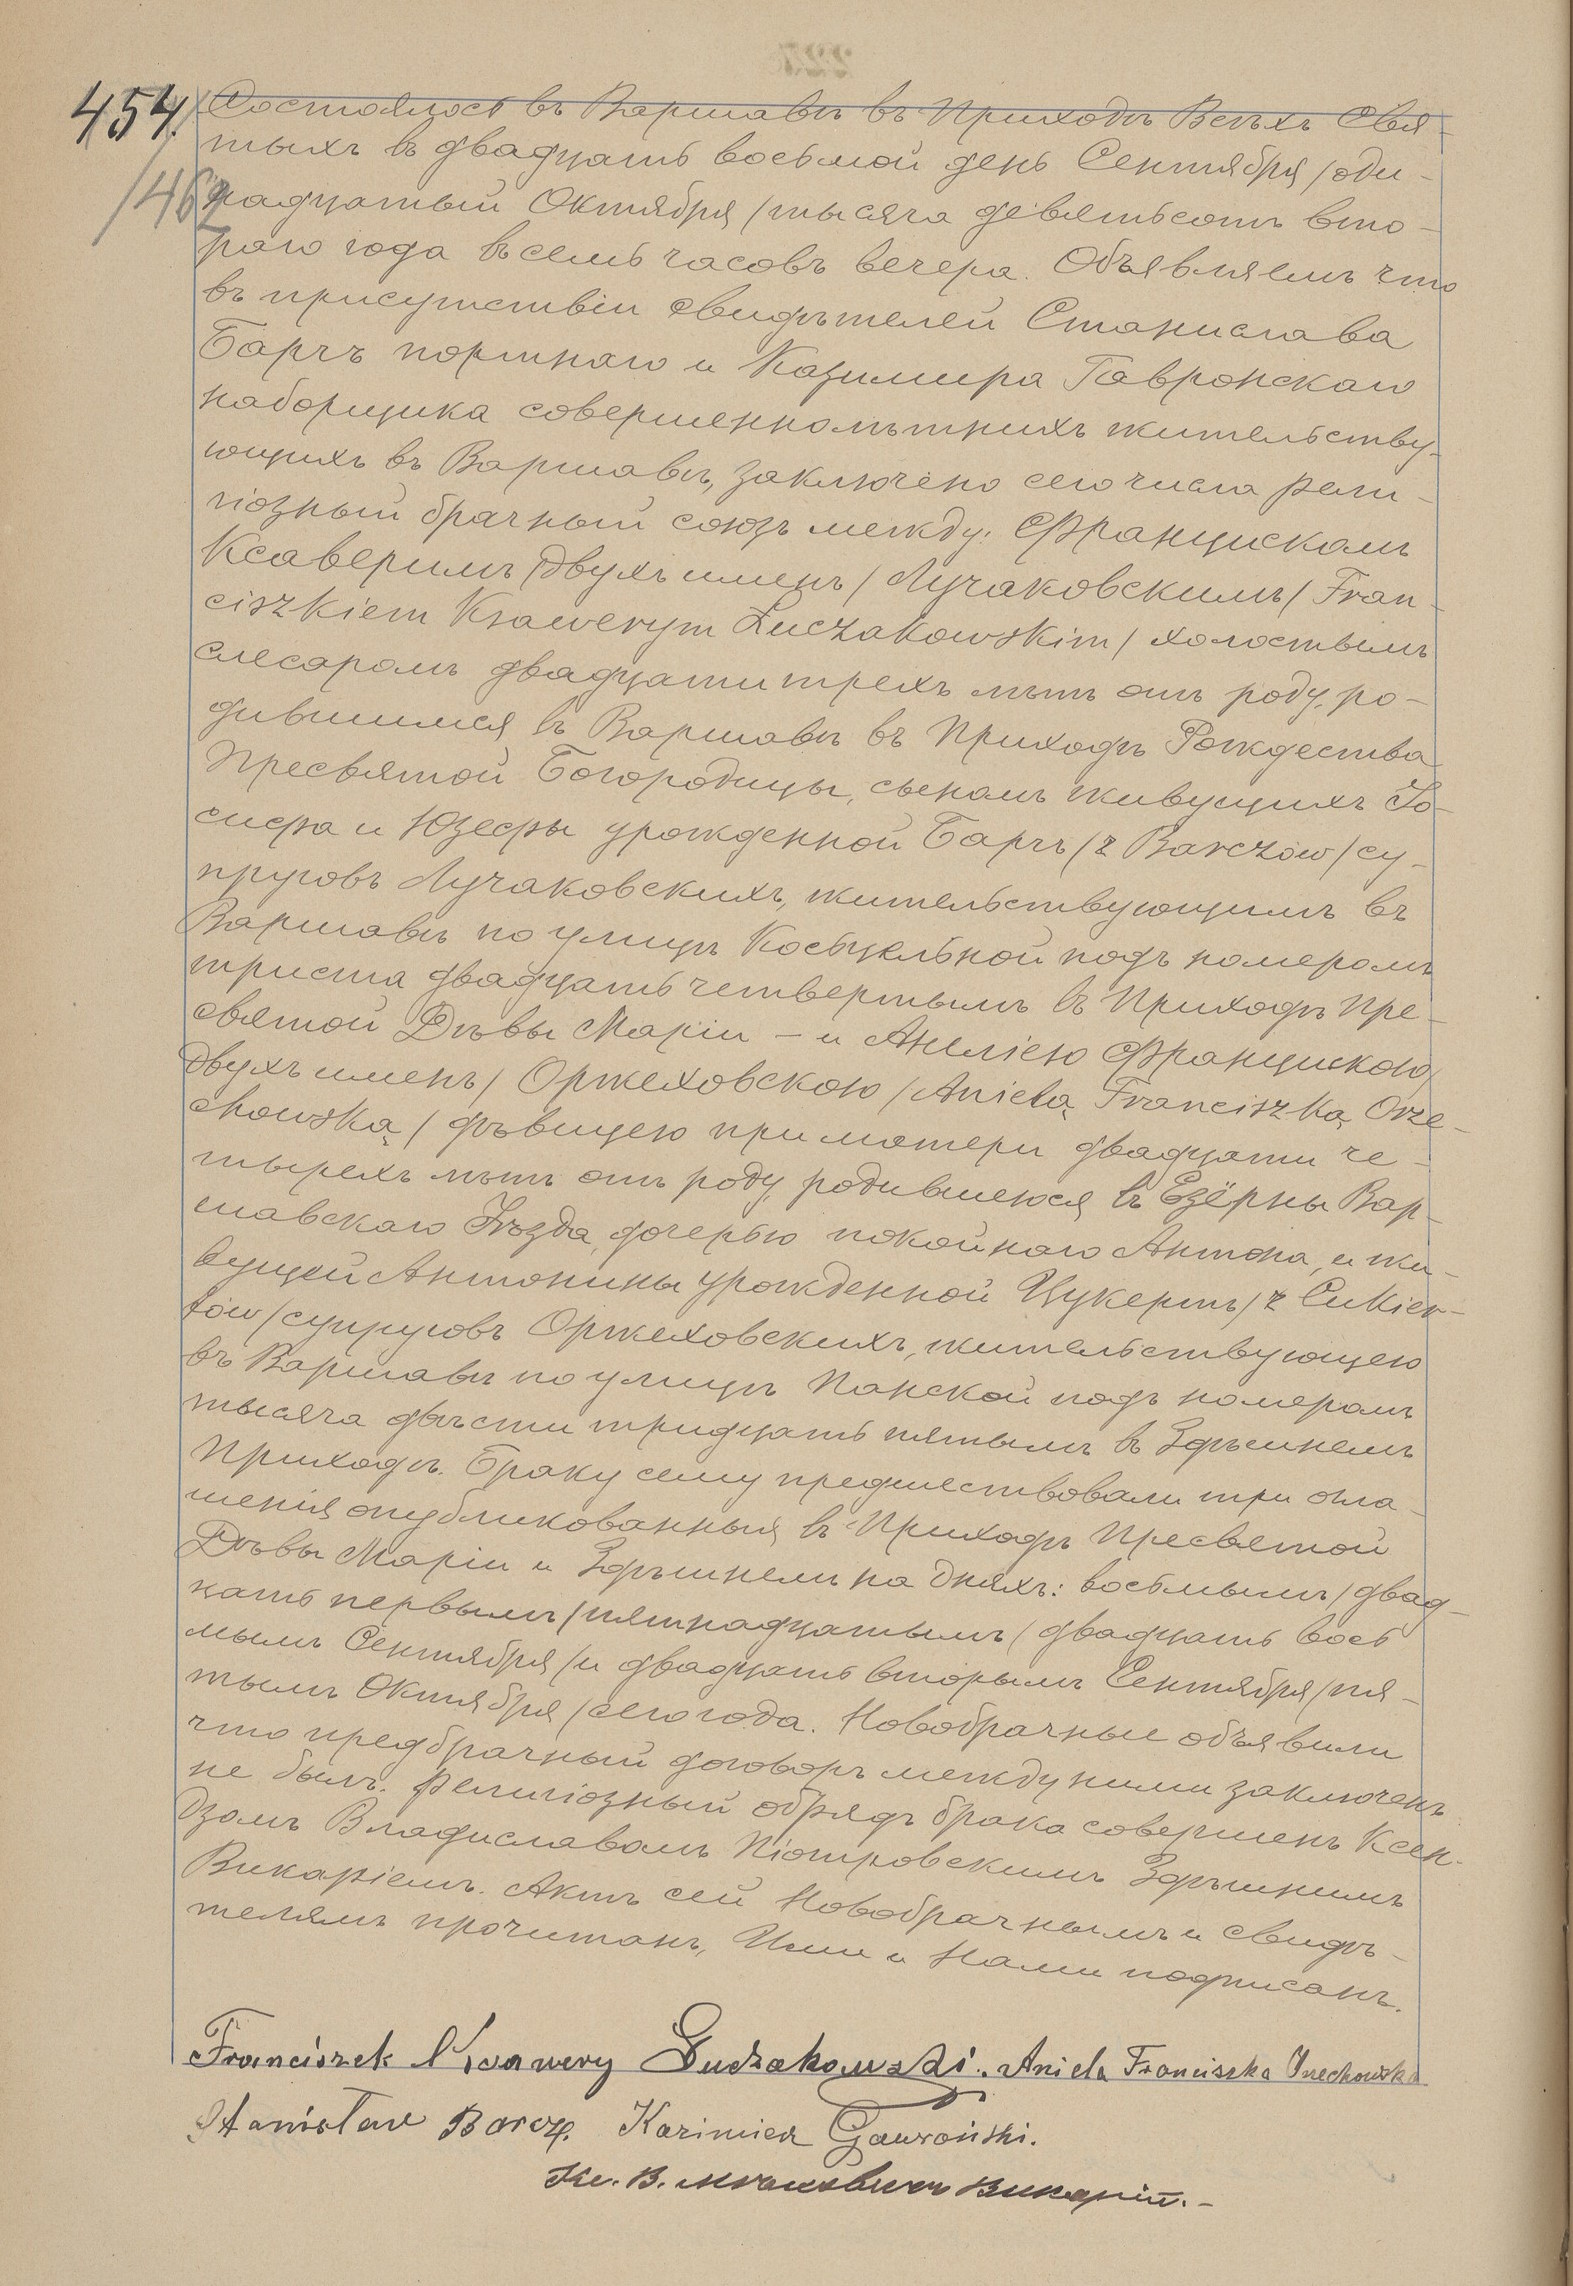 454.
/462
Состоялось въ Варшавѣ въ Приходѣ Всѣхъ Свя-
тыхъ въ двадцать восьмой день Сентября /оди-
надцатый Октября/ тысяча девятьсотъ вто-
раго года въ семь часовъ вечера. Объявляемъ что
въ присутствіи свидѣтелей Станислава
Барчъ портнаго и Казимира Гавронскаго
наборщика совершеннолѣтнихъ жительству-
ющихъ въ Варшавѣ, заключено сего числа рели-
гіозный брачный союзъ между: Францискомъ
Ксаверимъ /двухъ именъ/ Лучаковскимъ /Fran-
ciszkiem Ksawerym Łuczakowskim/ холостымъ
слесаромъ двадцати трехъ лѣтъ отъ роду, ро-
дившимся въ Варшавѣ въ Приходѣ Рождества
Пресвятой Богородицы, сыномъ живущихъ Іо-
сифа и Юзефы урожденной Барчъ /z Barczów/ су-
пруговъ Лучаковскихъ, жительствующимъ въ
Варшавѣ по улицѣ Косьцельной подъ номеромъ
триста двадцать четвертымъ въ Приходѣ Пре-
святой Дѣвы Маріи – и Анелією Францискою /
двухъ именъ/ Оржеховскою /Anielą Franciszką Orze-
chowską/ дѣвицею при матери двадцати че-
тырехъ лѣтъ отъ роду, родившеюся въ Езёрны Вар-
шавскаго Уѣзда, дочерью покойнаго Антона, и жи-
вущей Антонины урожденной Цукертъ /z Cukier-
tów/ супруговъ Оржеховскихъ, жительствующею
въ Варшавѣ по улицѣ Панской подъ номеромъ
тысяча двѣсти тридцать пятымъ въ Здѣшнемъ
Приходѣ. Браку сему предшествовали три огла-
шенія опубликованныя въ Приходѣ Пресвятой
Дѣвы Маріи и Здѣшнемъ на дняхъ: восьмымъ /двад-
цать первымъ/ пятнадцатымъ /двадцать вось
мымъ Сентября/ и двадцать вторымъ Сентября /пя-
тымъ Октября/ сего года. Новобрачные объявили
что предбрачный договоръ между ними заключенъ
не былъ. Религіозный обрядъ брака совершенъ Ксен-
дзомъ Владиславомъ Піотровскимъ Здѣшнимъ
Викаріемъ. Актъ сей Новобрачнымъ и свидѣ-
телямъ прочитанъ, Ими и Нами подписанъ.
Franciszek Ksawery Łuczakowski. Aniela Franciszka Orzechowska
Stanisław Barcz. Kazimierz Gawroński.
Кс. В. Викарій.-